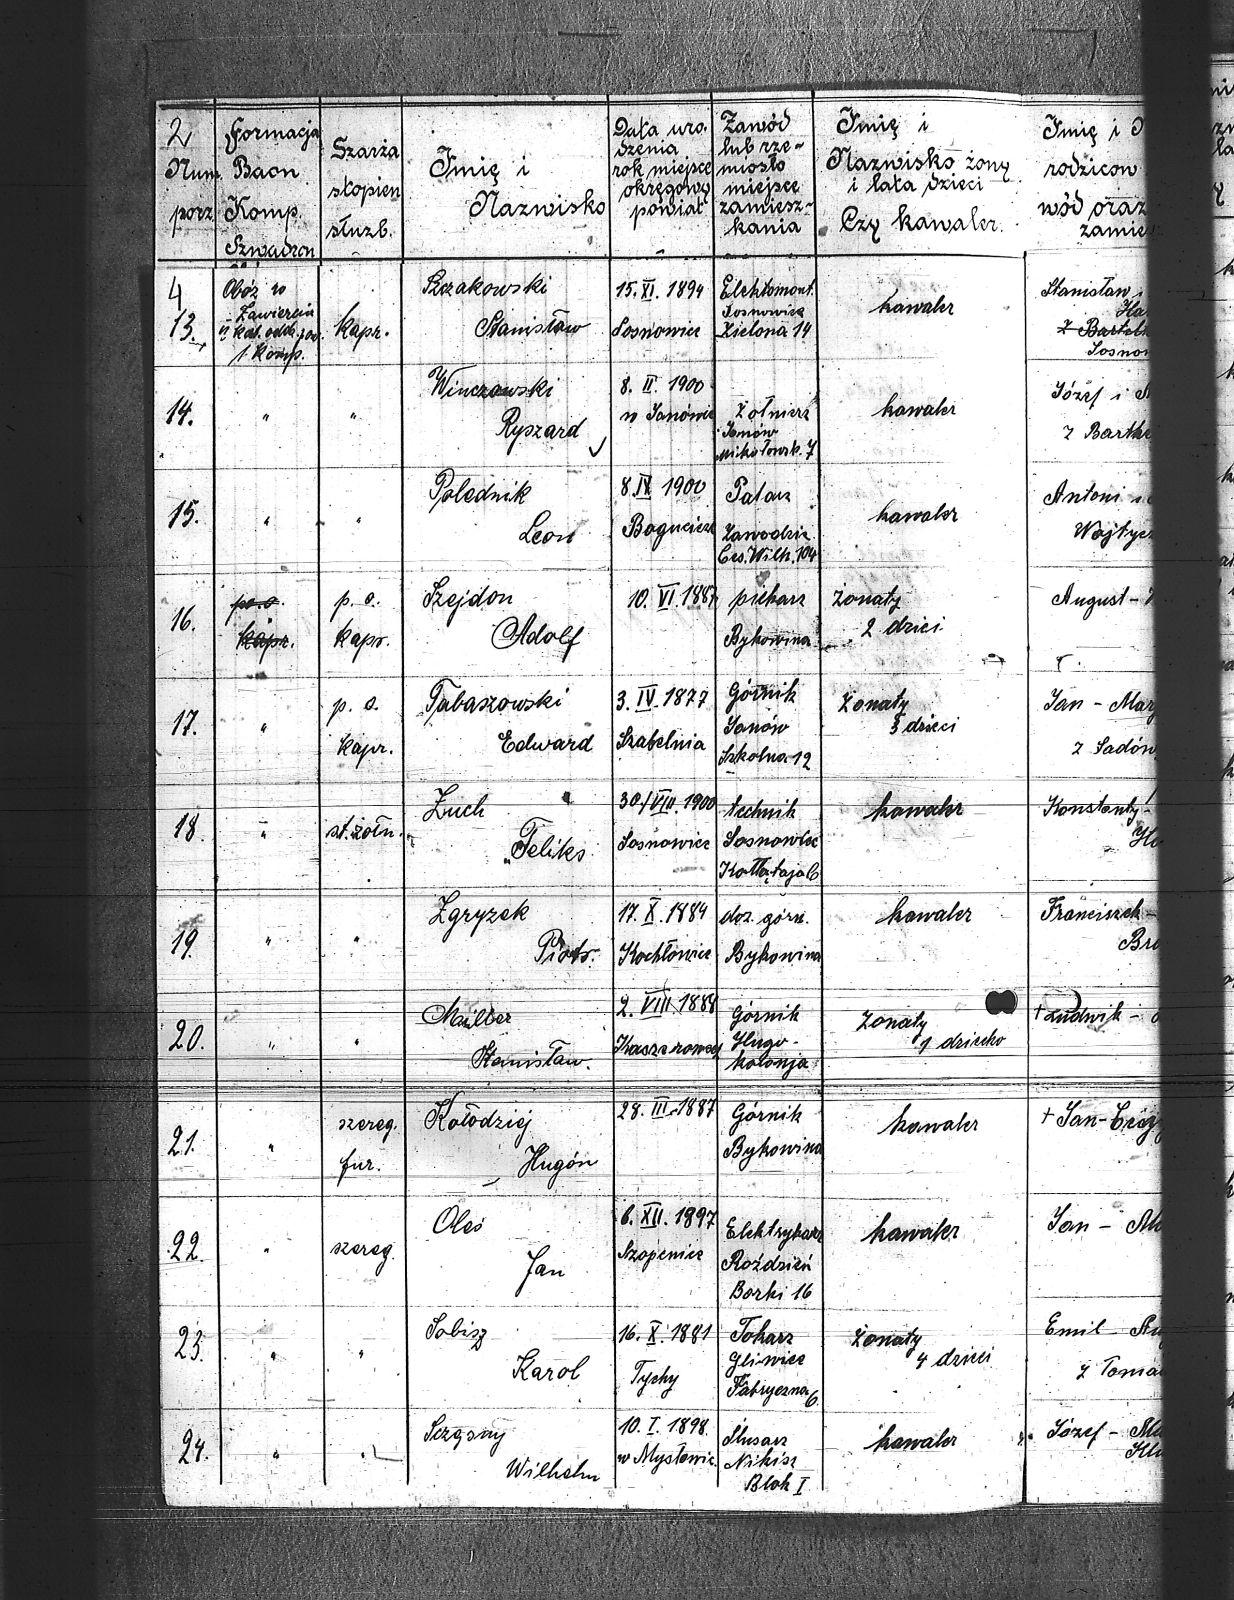 2
Num. porz.
Formacja
Baon
Komp.
Szwadron
Szarża
stopień
służb.
Imię i
Nazwisko
Data uro-
dzenia
rok miejsce
okręgowy
powiat
Zawód
lub rze-
miosło
miejsce
zamiesz-
kania
Imię i
Nazwisko żony
i lata dzieci
Czy kawaler.
Imię i
rodzicow
wód oraz
zamie
4
13.
Obóz w
Zawierciu
1. Komp.
kapr.
Szczakowski
Stanisław
15. XI. 1894
Sosnowice
Elektomont.
Sosnowice
Zielona 14
kawaler
Stanisław
Sosno
14.
"
"
Winczowski
Ryszard
8. II. 1900
w Janówie
Żołnierz
Janów
Mikołowsk. 7
kawaler
Józef i
z Bartke
15.
"
"
Polednik
Leon
8. IV 1900
Bogucice
Palacz
Zawodzie
Ces. Wilh. 104
kawaler
Antoni
Wojtycz
16.
p. o.
kapr.
p. o.
kapr.
Szejdon
Adolf
10. VI. 1887
piekarz
Bykowina
Żonaty
2 dzieci
August -
17.
"
p. o.
kapr.
Tabaszowski
Edward
3. IV. 1877
Szabelnia
Górnik
Janów
Szkolna 12
Żonaty
5 dzieci
Jan - Mar
z Sadów
18.
"
st. żołn.
Żuch
Feliks
30/VIII. 1900
Sosnowiec
technik
Sosnowiec
Kołłątaja 6
kawaler
Konstanty -
19.
"
"
Zgryzek
Piotr.
17. X. 1884
Kochłowice
doz. górn.
Bykowina
kawaler
Franciszek -
Bro
20.
"
"
Stanisław.
2. VIII 1888
Górnik
Hugo-
kolonja
Żonaty
1 dziecko
† Ludwik -
21.
"
szereg.
fur.
Kołodziej
Hugon
28. III. 1887
Górnik
Bykowina
kawaler
† Jan -
22.
"
szereg.
Oleś
Jan
6. XII. 1897
Szopienice
Elektrykarz
Roździeń
Borki 16
kawaler
Jan -
23.
"
"
Sobisz
Karol
16. X. 1881
Tychy
Tokarz
Gliwice
Fabryczna 6
Żonaty
4 dzieci
Emil -
z Toma
24.
"
"
Szczęsny
Wilhelm
10. I. 1898.
w Mysłowic.
Ślusarz
Nikisz
Blok I
kawaler
Józef -